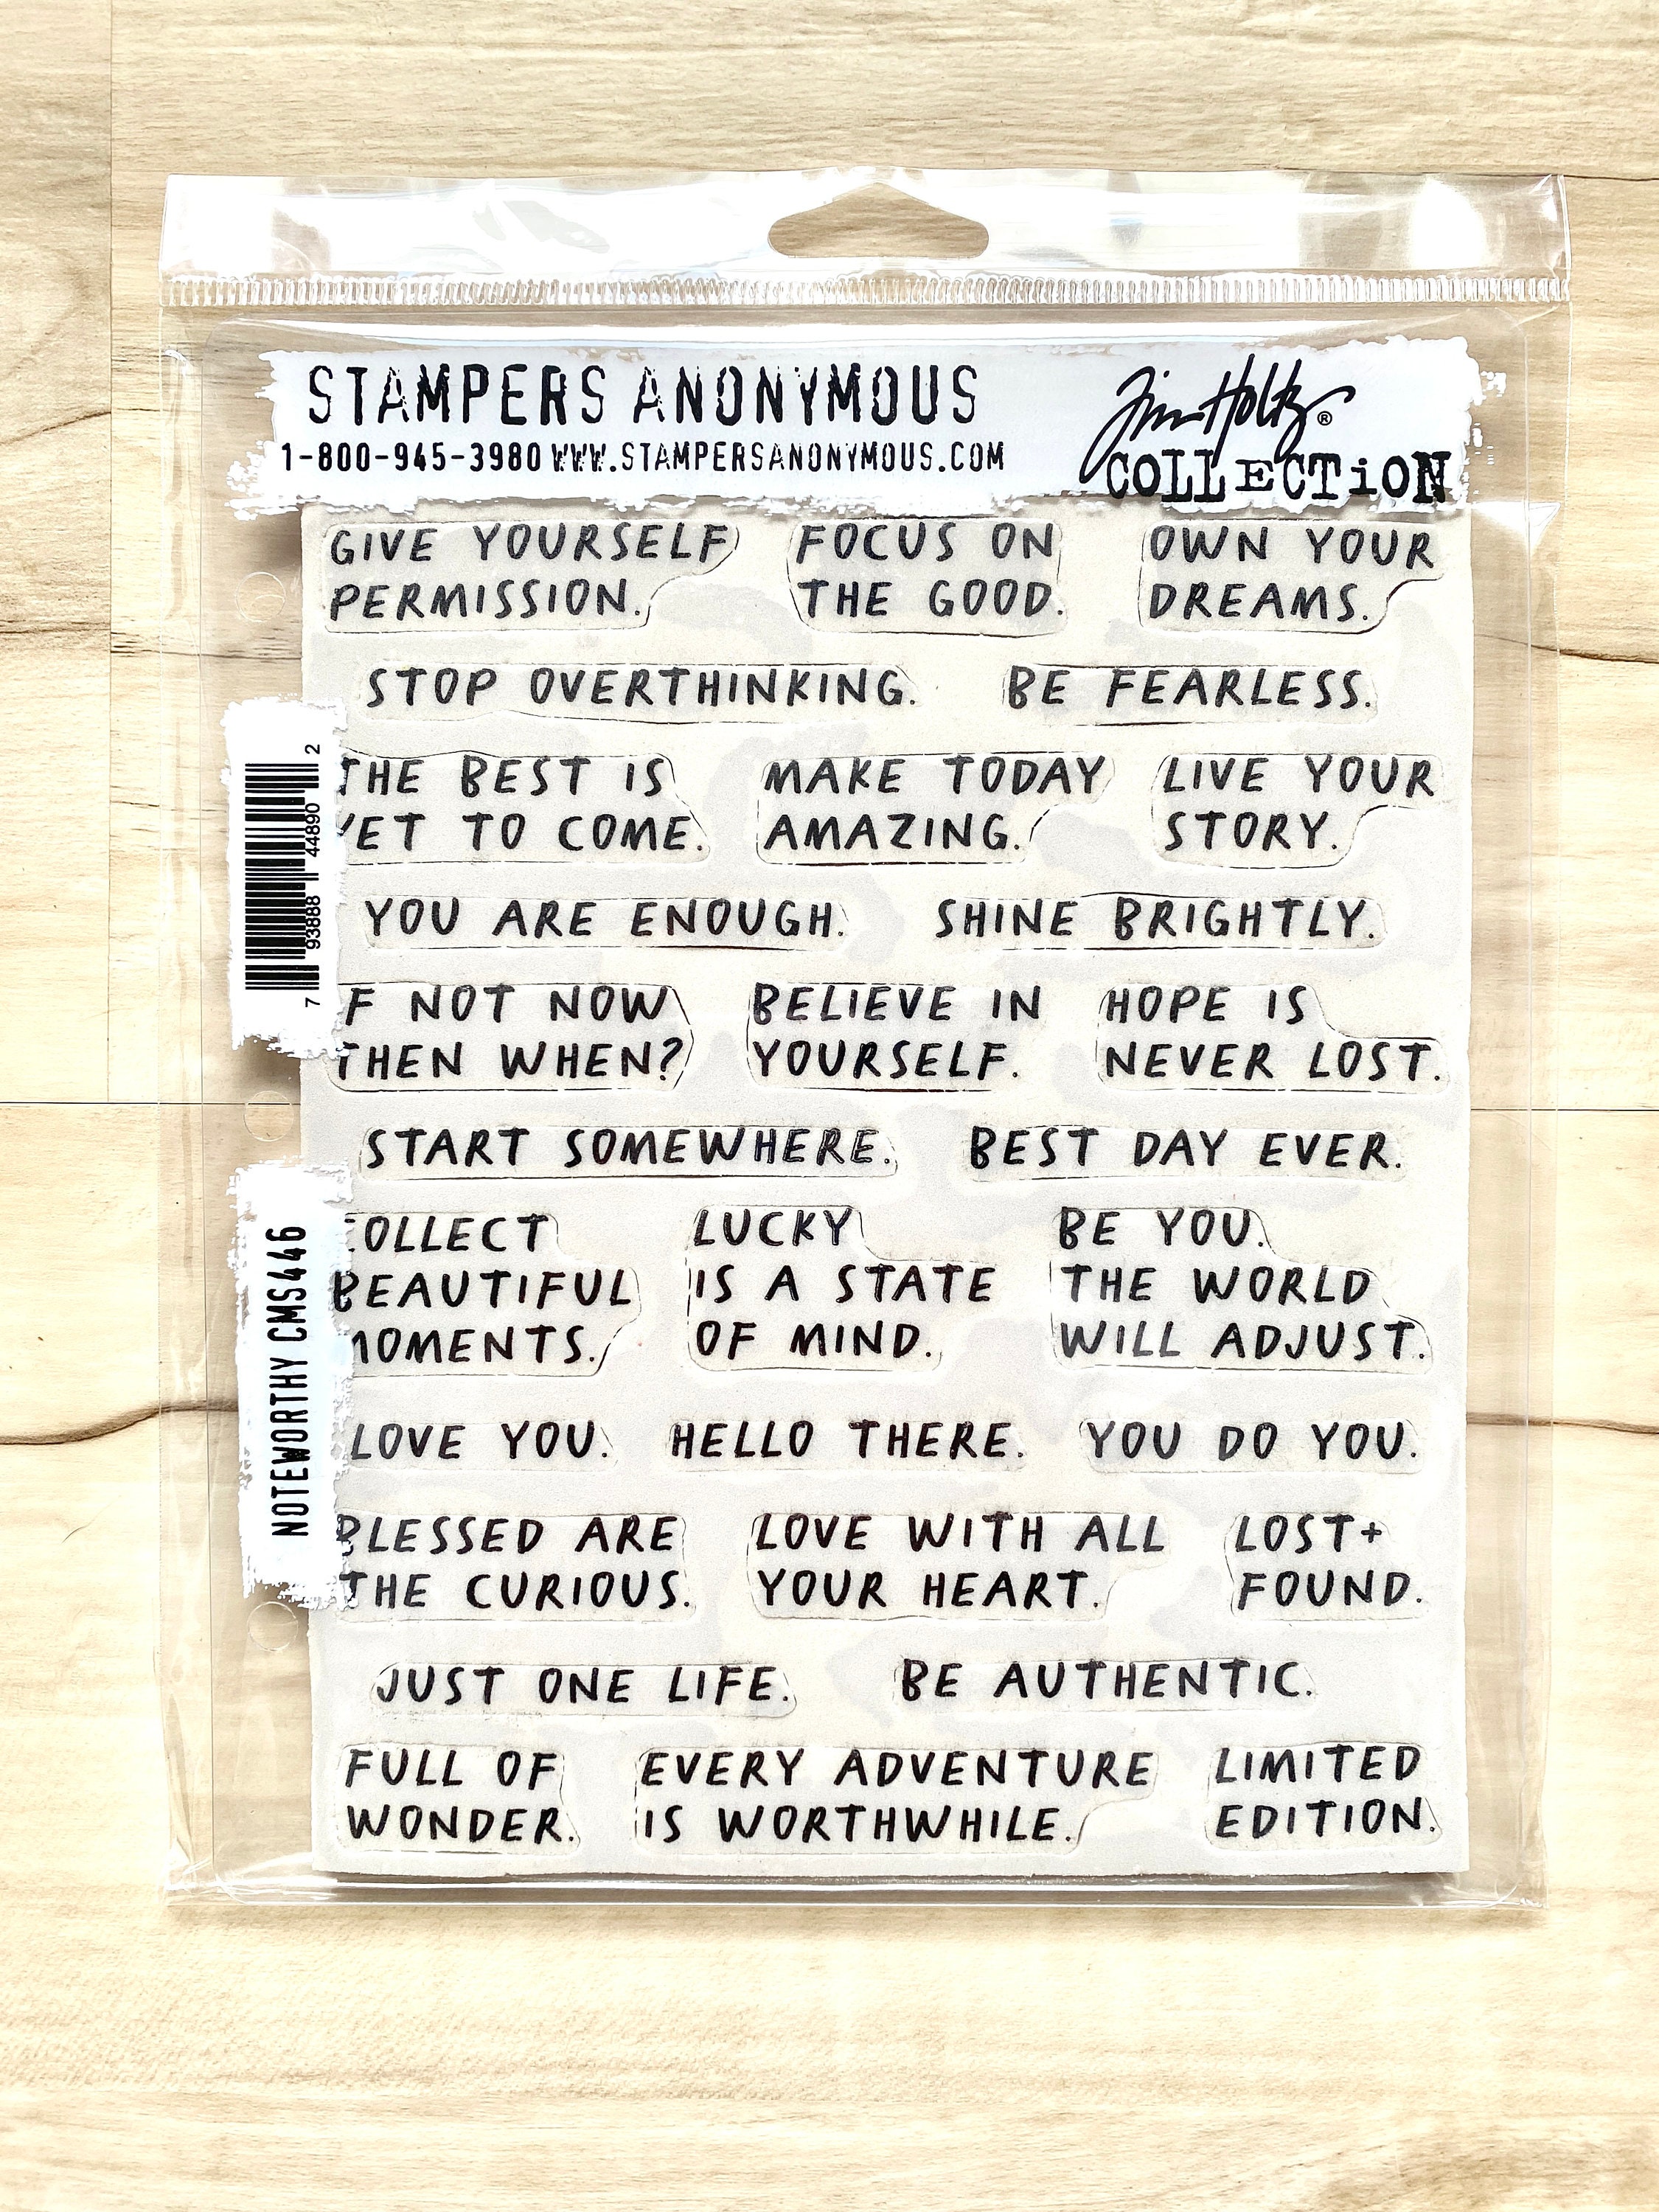 STAMPERS ANONYMOUS
1-800-945-3980 WWW.STAMPERSANONYMOUS.COM
Tim Holtz®
COLLECTiON
GIVE YOURSELF
PERMISSION.
FOCUS ON
THE GOOD.
OWN YOUR
DREAMS.
STOP OVERTHINKING.
BE FEARLESS.
THE BEST IS
YET TO COME.
MAKE TODAY
AMAZING.
LIVE YOUR
STORY.
YOU ARE ENOUGH.
SHINE BRIGHTLY.
F NOT NOW
THEN WHEN?
BELIEVE IN
YOURSELF.
HOPE IS
NEVER LOST.
START SOMEWHERE.
BEST DAY EVER.
COLLECT
BEAUTIFUL
MOMENTS.
LUCKY
IS A STATE
OF MIND.
BE YOU.
THE WORLD
WILL ADJUST.
LOVE YOU.
HELLO THERE.
YOU DO YOU.
BLESSED ARE
THE CURIOUS.
LOVE WITH ALL
YOUR HEART.
LOST+
FOUND.
JUST ONE LIFE.
BE AUTHENTIC.
FULL OF
WONDER.
EVERY ADVENTURE
IS WORTHWHILE.
LIMITED
EDITION.
7 93888 44890 2
NOTEWORTHY CMS446